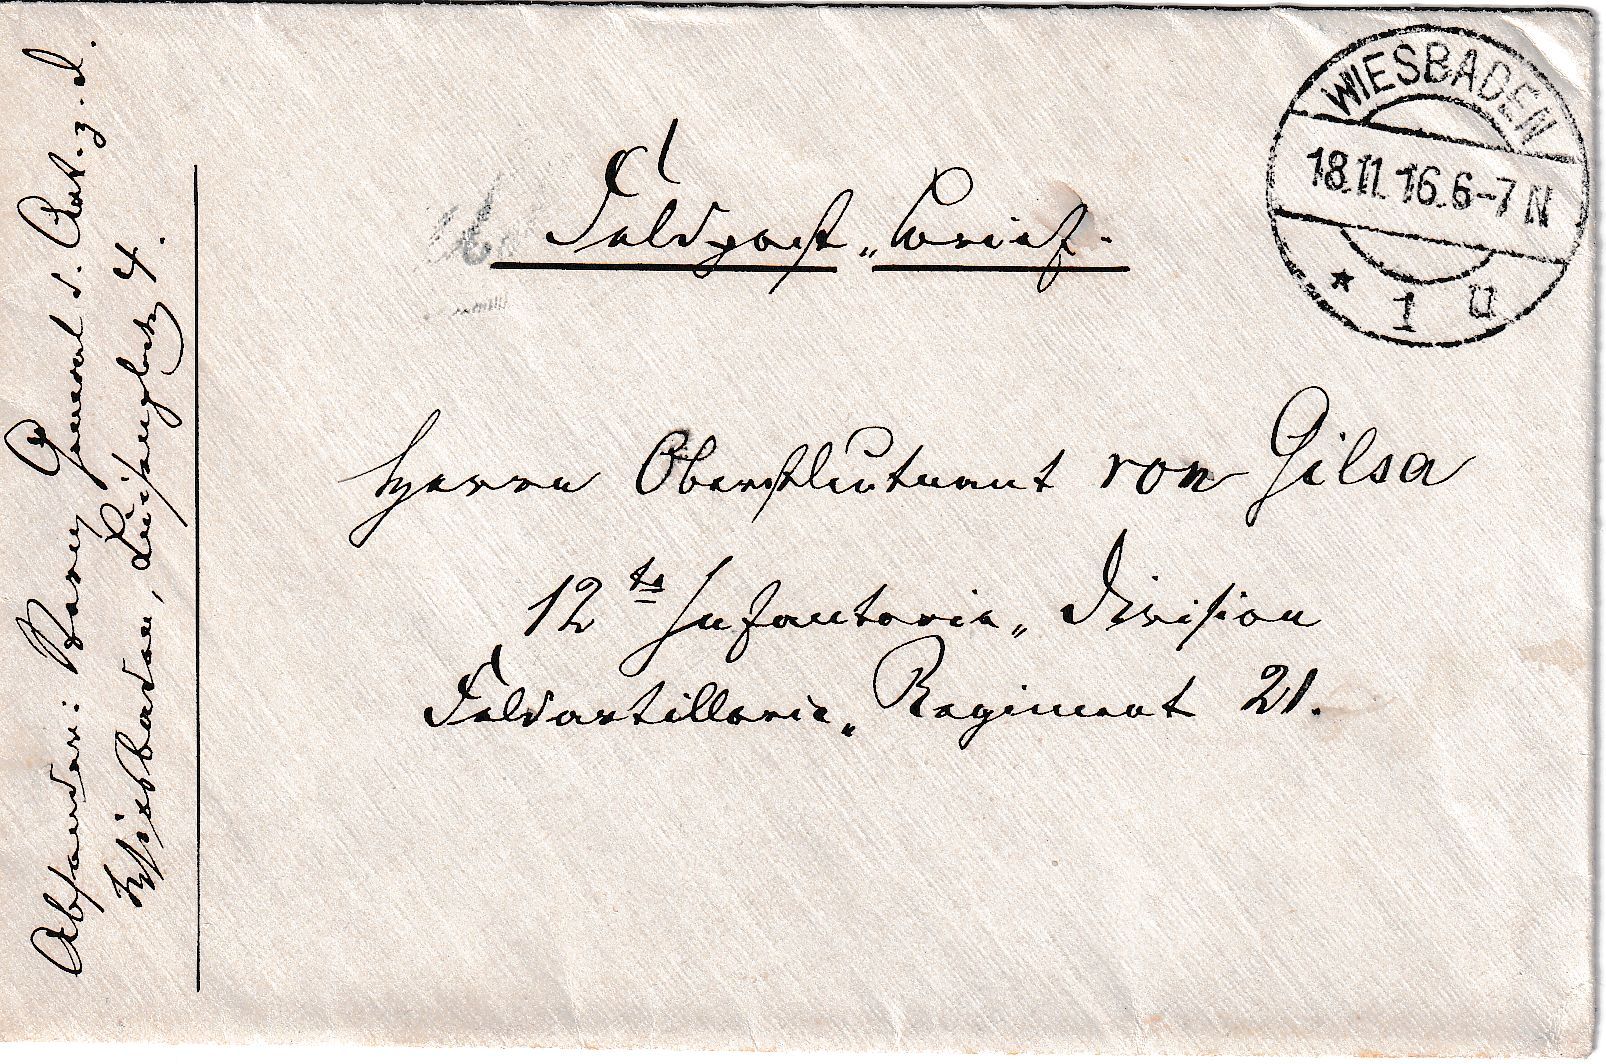 WIESBADEN
18.11.16.6-7 N
* 1 u
Feldpost-Brief.
Herrn Oberstleutnant von Gilsa
12te Infanterie-Division
Feldartillerie-Regiment 21.
Absender: General d. Art. z. D.
Wiesbaden, Luisenplatz 4.